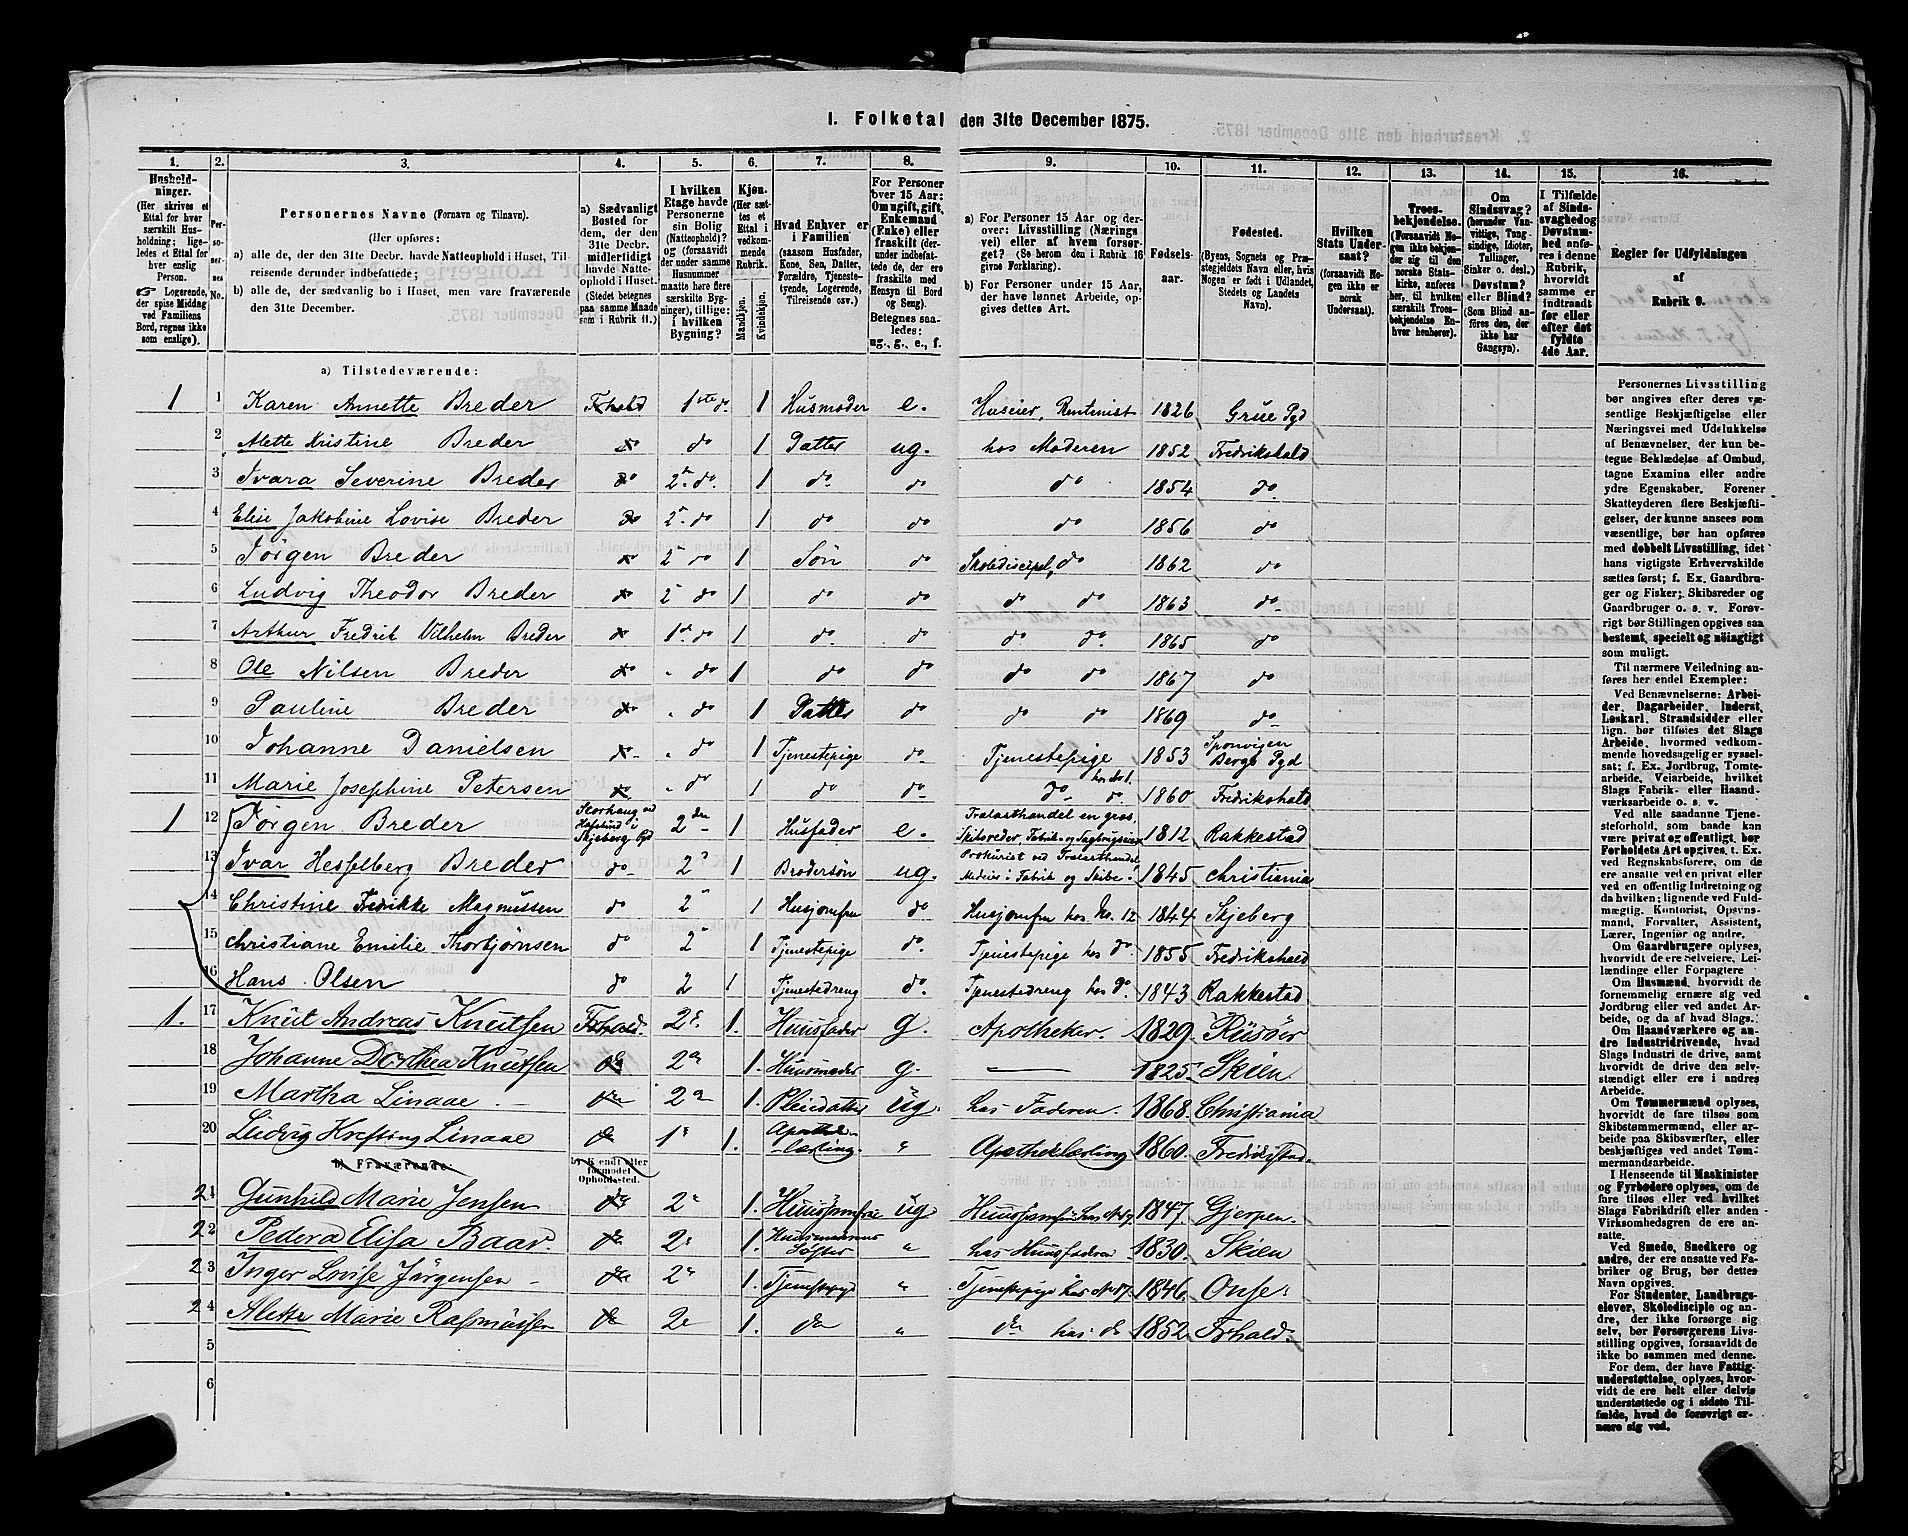 1. Folketal den 31te December 1875.
1. 2. 3. 4. 5. 6. 7. 8. 9. 10. 11. 12. 13. 14. 15. 16.
Husholdninger. (Her skrives et Ettal for hver særskilt Husholdning; ligeledes et Ettal for hver enslig Person. ☞ Logerende, der spise Middag ved Familiens Bord, regnes ikke som enslige).
Personernes No.
Personernes Navne (Fornavn og Tilnavn).
(Her opføres:
a) alle de, der den 31te Decbr. havde Natteophold i Huset, Tilreisende derunder indbefattede;
b) alle de, der sædvanlig bo i Huset, men vare fraværende den 31te December.
a) Sædvanligt Bosted for dem, der den 31te Decbr. midlertidigt havde Natteophold i Huset. (Stedet betegnes paa samme Maade som i Rubrik 11.)
I hvilken Etage havde Personerne sin Bolig (Natteophold)? og (forsaavidt der under samme Husnummer maatte høre flere særskilte Bygninger), tillige: i hvilken Bygning?
Kjøn. (Her sættes et Ettal i vedkommende Rubrik. Mandkjøn. Kvindekjøn.
Hvad Enhver er i Familien (saasom Husfader, Kone, Søn, Datter, Forældre, Tjenestetyende, Logerende, Tilreisende osv.)
For Personer over 15 Aar: Om ugift, gift, Enkemand (Enke) eller fraskilt (derunder indbefattede de, der ere fraskilte med Hensyn til Bord og Seng) Betegnes saaledes: ug., g., e., f.
a) For Personer 15 Aar og derover: Livsstilling (Næringsvei) eller af hvem forsørget? (Se herom den i Rubrik 16 givne Forklaring).
b) For Personer under 15 Aar, der have lønnet Arbeide, opgives dettes Art.
Fødselsaar.
Fødested. (Byens, Sognets og Præstegjeldets Navn eller, hvis Nogen er født i Udlandet, Stedets og Landets Navn).
Hvilken Stats Undersaat? (forsaavidt Nogen ikke er norsk Undersaat).
Troesbekjendelse. (Forsaavidt Nogen ikke bekjender sig til den norske Statskirke, anføres her, til hvilken særskilt Troesbekjendelse Enhver henhører).
Om Sindssvag? (herunder Vanvittige, Tungsindige, Idioter, Tullinger, Sinker o. desl.) Døvstum? eller Blind? (Som Blind anføres den, der ikke har Gangsyn).
I Tilfælde af Sindssvaghed og Døvstumhed anføres i denne Rubrik, hvorvidt samme er indtraadt før eller efter det fyldte 4de Aar.
Regler for Udfyldningen af Rubrik 9.
a) Tilstedeværende:
1 1 Karen Annette Breder Fhald 1ste d. 1 Husmoder e. Huseier, Rentenist 1826 Grue Pgd
2 Alette Kristine Breder do do 1 Datter ug. hos Moderen 1852 Fredrikshald
3 Ivara Severine Breder do 2. do. 1 do do do 1854 do
4 Elise Jakobine Lovise Breder do 2. do 1 do do do 1856 do
5 Jørgen Breder do 2 do 1 Søn do Skoledicipel, do 1862 do
6 Ludvig Theodor Breder do 2 do 1 do do do do 1863 do
7 Arthur Fredrik Vilhelm Breder do 1ste do 1 do do do do 1865 do
8 Ole Nilsen Breder do " do 1 do do do do 1867 do
9 Pauline Breder do " do 1 Datter do do do 1869 do
10 Johanne Danielsen do " do 1 Tjenestepige do. Tjenestepige 1853 Sponvigen Bergs Pgd
11 Marie Josephine Petersen do " do 1 do do do hos do 1860 Fredrikshald
1 12 Jørgen Breder Storhaug ved Hafslund i Skjeberg Pgd 2den 1 Husfader e. Trælasthandel en gros, Skibsreder, Fabrik- og Sagbrugseier 1812 Rakkestad
13 Ivar Hesselberg Breder do 2 1 Brodersøn ug. Prokurist ved Trælasthandel Medeier i Fabrik og Skibe 1845 Christiania
14 Christine Fredrikke Magnussen do 2 1 Husjomfru do Husjomfru hos No. 12 1844 Skjeberg
15 Christiane Emilie Thorbjørnsen do 2 1 Tjenestepige do. Tjenestepige hos do 1855 Fredrikshald
16 Hans Olsen do 2 1 Tjenestedreng do. Tjenestedreng hos do. 1843 Rakkestad
1. 17 Knut Andreas Knutsen Frhald. 2e. 1. Huusfader g. Apotheker. 1829. Risøer
18 Johanne Dorthea Knutsen do 2e 1. Huusmoder g. — 1825. Skien
19 Martha Linaae. do 2e 1. Pleiedatter ug. hos Faderen. 1868. Christiania
20 Ludvig Krefting Linaae do 1e 1. Apothe-lærling. " Apothekerlærling 1860. Fredrikstad.
b) Fraværende: b) Kjendt eller formodet Opholdssted.
21 Gunhild Marie Jensen do 2e 1. Huusjomfru ug Huusjomfru hos No 17 1847. Gjerpen.
22 Pedera Elisa Baar. do 2e 1. Huusmoderens Søster " hos Huusfaderen 1830. Skien
23 Inger Lovise Jørgensen do 2e 1. Tjenestepige " Tjenestepige hos No 17. 1846. Onsø
24 Alette Marie Rasmussen do 2e 1. do " do hos do 1852. Frhald.
5
6
Personernes Livsstilling bør angives efter deres væsentlige Beskjæftigelse eller Næringsvei med Udelukkelse af Benævnelser, der kun betegne Beklædelse af Ombud, tagne Examina eller andre ydre Egenskaber. Forener Skatteyderen flere Beskjæftigelser, der kunne ansees som væsentlige, bør han opføres med dobbelt Livsstilling, idet hans vigtigste Erhvervskilde sættes først; f. Ex. Gaardbruger og Fisker; Skibsreder og Gaardbruger o. s. v. Forøvrigt bør Stillingen opgives saa bestemt, specielt og nøiagtigt som muligt.
Til nærmere Veiledning anføres her endel Exempler:
Ved Benævnelserne: Arbeider, Dagarbeider, Inderst, Løskarl, Strandsidder eller lign. bør tilføies det Slags Arbeide, hvormed vedkommende hovedsagelig er sysselsat; f. Ex. Jordbrug, Tomtearbeide, Veiarbeide, hvilket Slags Fabrik- eller Haandværksarbeide o. s. v.
Ved alle saadanne Tjenesteforhold, som baade kan være private og offentlig, bør Forholdets Art opgives, t. Ex. ved Regnskabsførere, om de ere ansatte ved en privat eller ved en offentlig Indretning og da hvilken; lignende ved Fuldmægtig, Kontorist, Opsynsmand, Forvalter, Assistent, Lærer, Ingeniør og andre.
Om Gaardbrugere oplyses, hvorvidt de ere Selveiere, Leilændinge eller Forpagtere
Om Husmænd, hvorvidt de fornemmelig ernære sig ved Jordbrug eller ved andet Arbeide, og da af hvad Slags.
Om Haandværkere og andre Industridrivende, hvad Slags Industri de drive, samt hvorvidt de drive den selvstændigt eller ere i andres Arbeide.
Om Tømmermænd oplyses, hvorvidt de fare tilsøs som Skibstømmermænd, eller arbeide paa Skibsværfter, eller beskjæftiges ved andet Tømmermandsarbeide.
I Henseende til Maskinister og Fyrbødere oplyses, om de fare tilsøs eller ved hvilket Slags Fabrikdrift eller anden Virksomhedsgren de ere ansatte.
Ved Smede, Snedkere og andre, der ere ansatte ved Fabriker og Brug, bør dettes Navn opgives.
For Studenter, Landbrugselever, Skoledisciple og andre, der ikke forsørge sig selv, bør Forsørgerens Livsstilling opgives, forsaavidt de ikke bo sammen med denne.
For dem, der have Fattigunderstøttelse, oplyses, hvorvidt de ere helt eller delvis understøttede og i sidste Tilfælde, hvad de forøvrigt ernære sig ved.